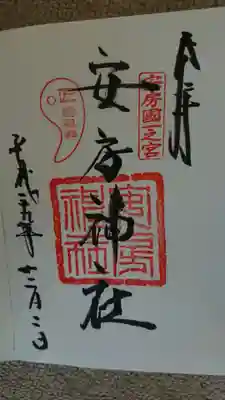 奉拝
安房國一之宮
安房神社
安房神社
平成二十五年十二月二日